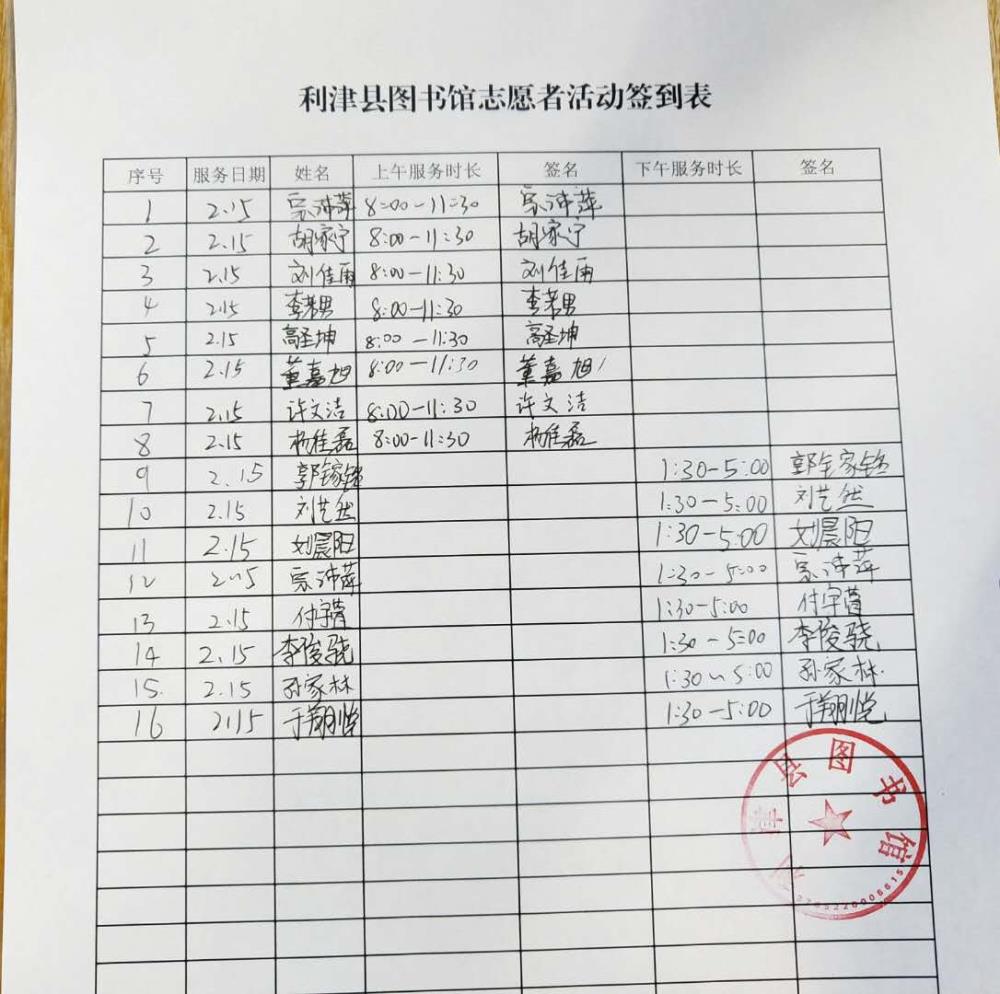 利津县图书馆志愿者活动签到表
序号 服务日期 姓名 上午服务时长 签名 下午服务时长 签名
1 2.15 宗沛萍 8:00-11:30 宗沛萍
2 2.15 胡家宁 8:00-11:30 胡家宁
3 2.15 刘佳雨 8:00-11:30 刘佳雨
4 2.15 李若男 8:00-11:30 李若男
5 2.15 高圣坤 8:00-11:30 高圣坤
6 2.15 董嘉旭 8:00-11:30 董嘉旭
7 2.15 许文洁 8:00-11:30 许文洁
8 2.15 杨佳磊 8:00-11:30 杨佳磊
9 2.15 1:30-5:00
10 2.15 刘艺然 1:30-5:00 刘艺然
11 2.15 刘晨阳 1:30-5:00 刘晨阳
12 2.15 宗沛萍 1:30-5:00 宗沛萍
13 2.15 付宇菁 1:30-5:00 付宇菁
14 2.15 李俊骁 1:30-5:00 李俊骁
15. 2.15 孙家林 1:30~5:00 孙家林.
16 2.15 于翔悦 1:30-5:00 于翔悦
利津县图书馆